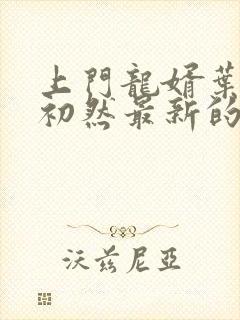 上門龍婿葉
初然最新的
沃兹尼亞